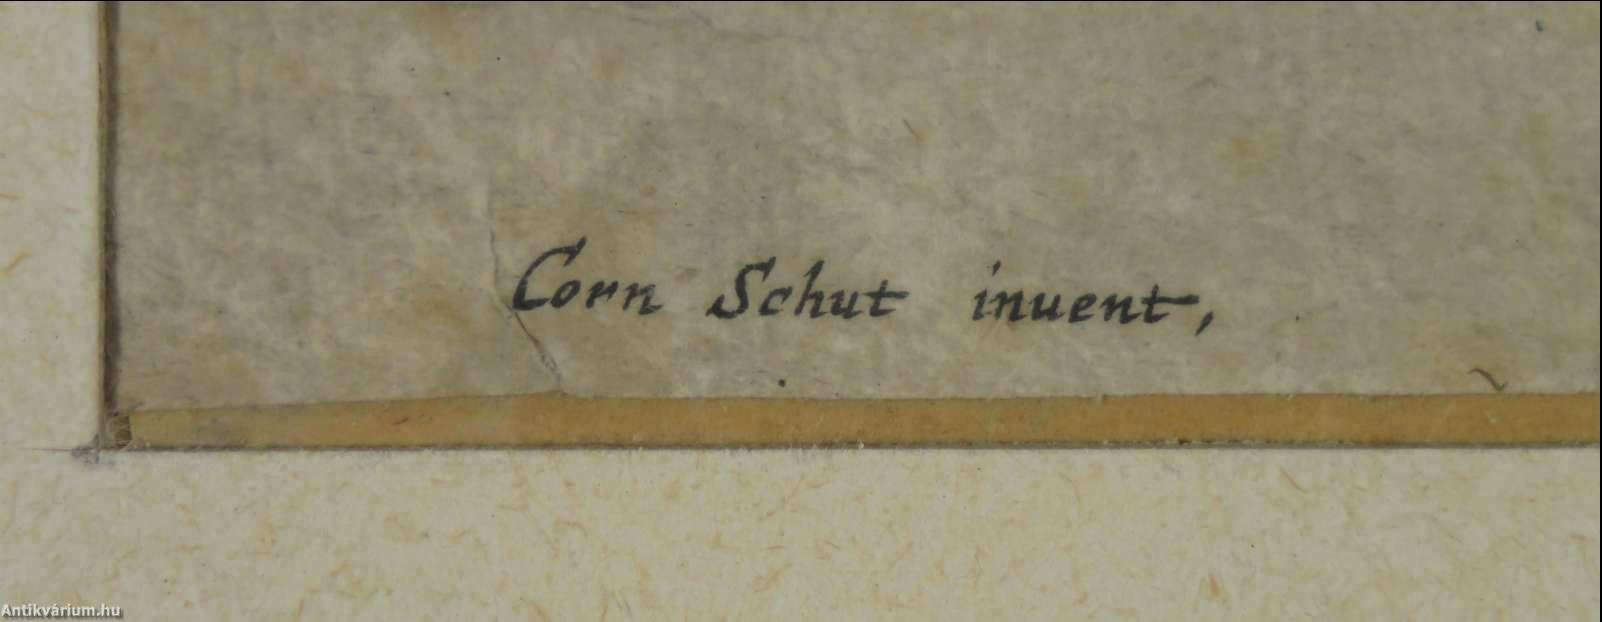 Corn Schut inuent,
Antikvárium.hu